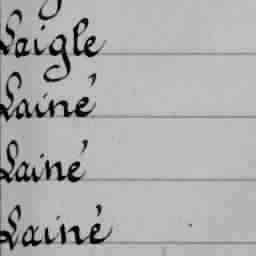 Laigle
Lainé
Lainé
Lainé